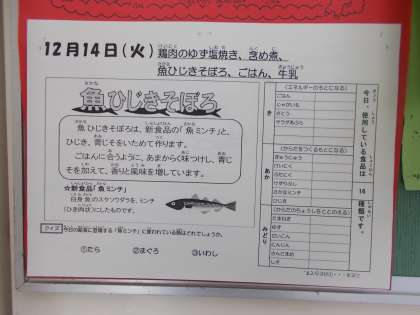 12月14日(火) 鶏肉のゆず塩焼き、含め煮、
魚ひじきそぼろ、ごはん、牛乳
魚ひじきそぼろ
魚ひじきそぼろは、新食品の「魚ミンチ」と、
ひじき、青じそをいためて作ります。
ごはんに合うように、あまからく味つけし、青じ
そを加えて、香りと風味を増しています。
☆新食品「魚ミンチ」
白身魚のスケソウダラを、ミンチ
(ひき肉状)にしたものです。
クイズ
今日の給食に登場する「魚ミンチ」に使われている魚はどれでしょうか。
①たら ②まぐろ ③いわし
今日、使用している食品は 16 種類です。
(エネルギーのもとになる)
ごはん
じゃがいも
さとう
サラダあぶら
あか
(からだをつくるもとになる)
ぎゅうにゅう
けいにく
けずりぶし
さかなミンチ
ひじき
みどり
(からだのちょうしをととのえる)
たまねぎ
ゆず
だいこん
にんじん
さんどまめ
しそ